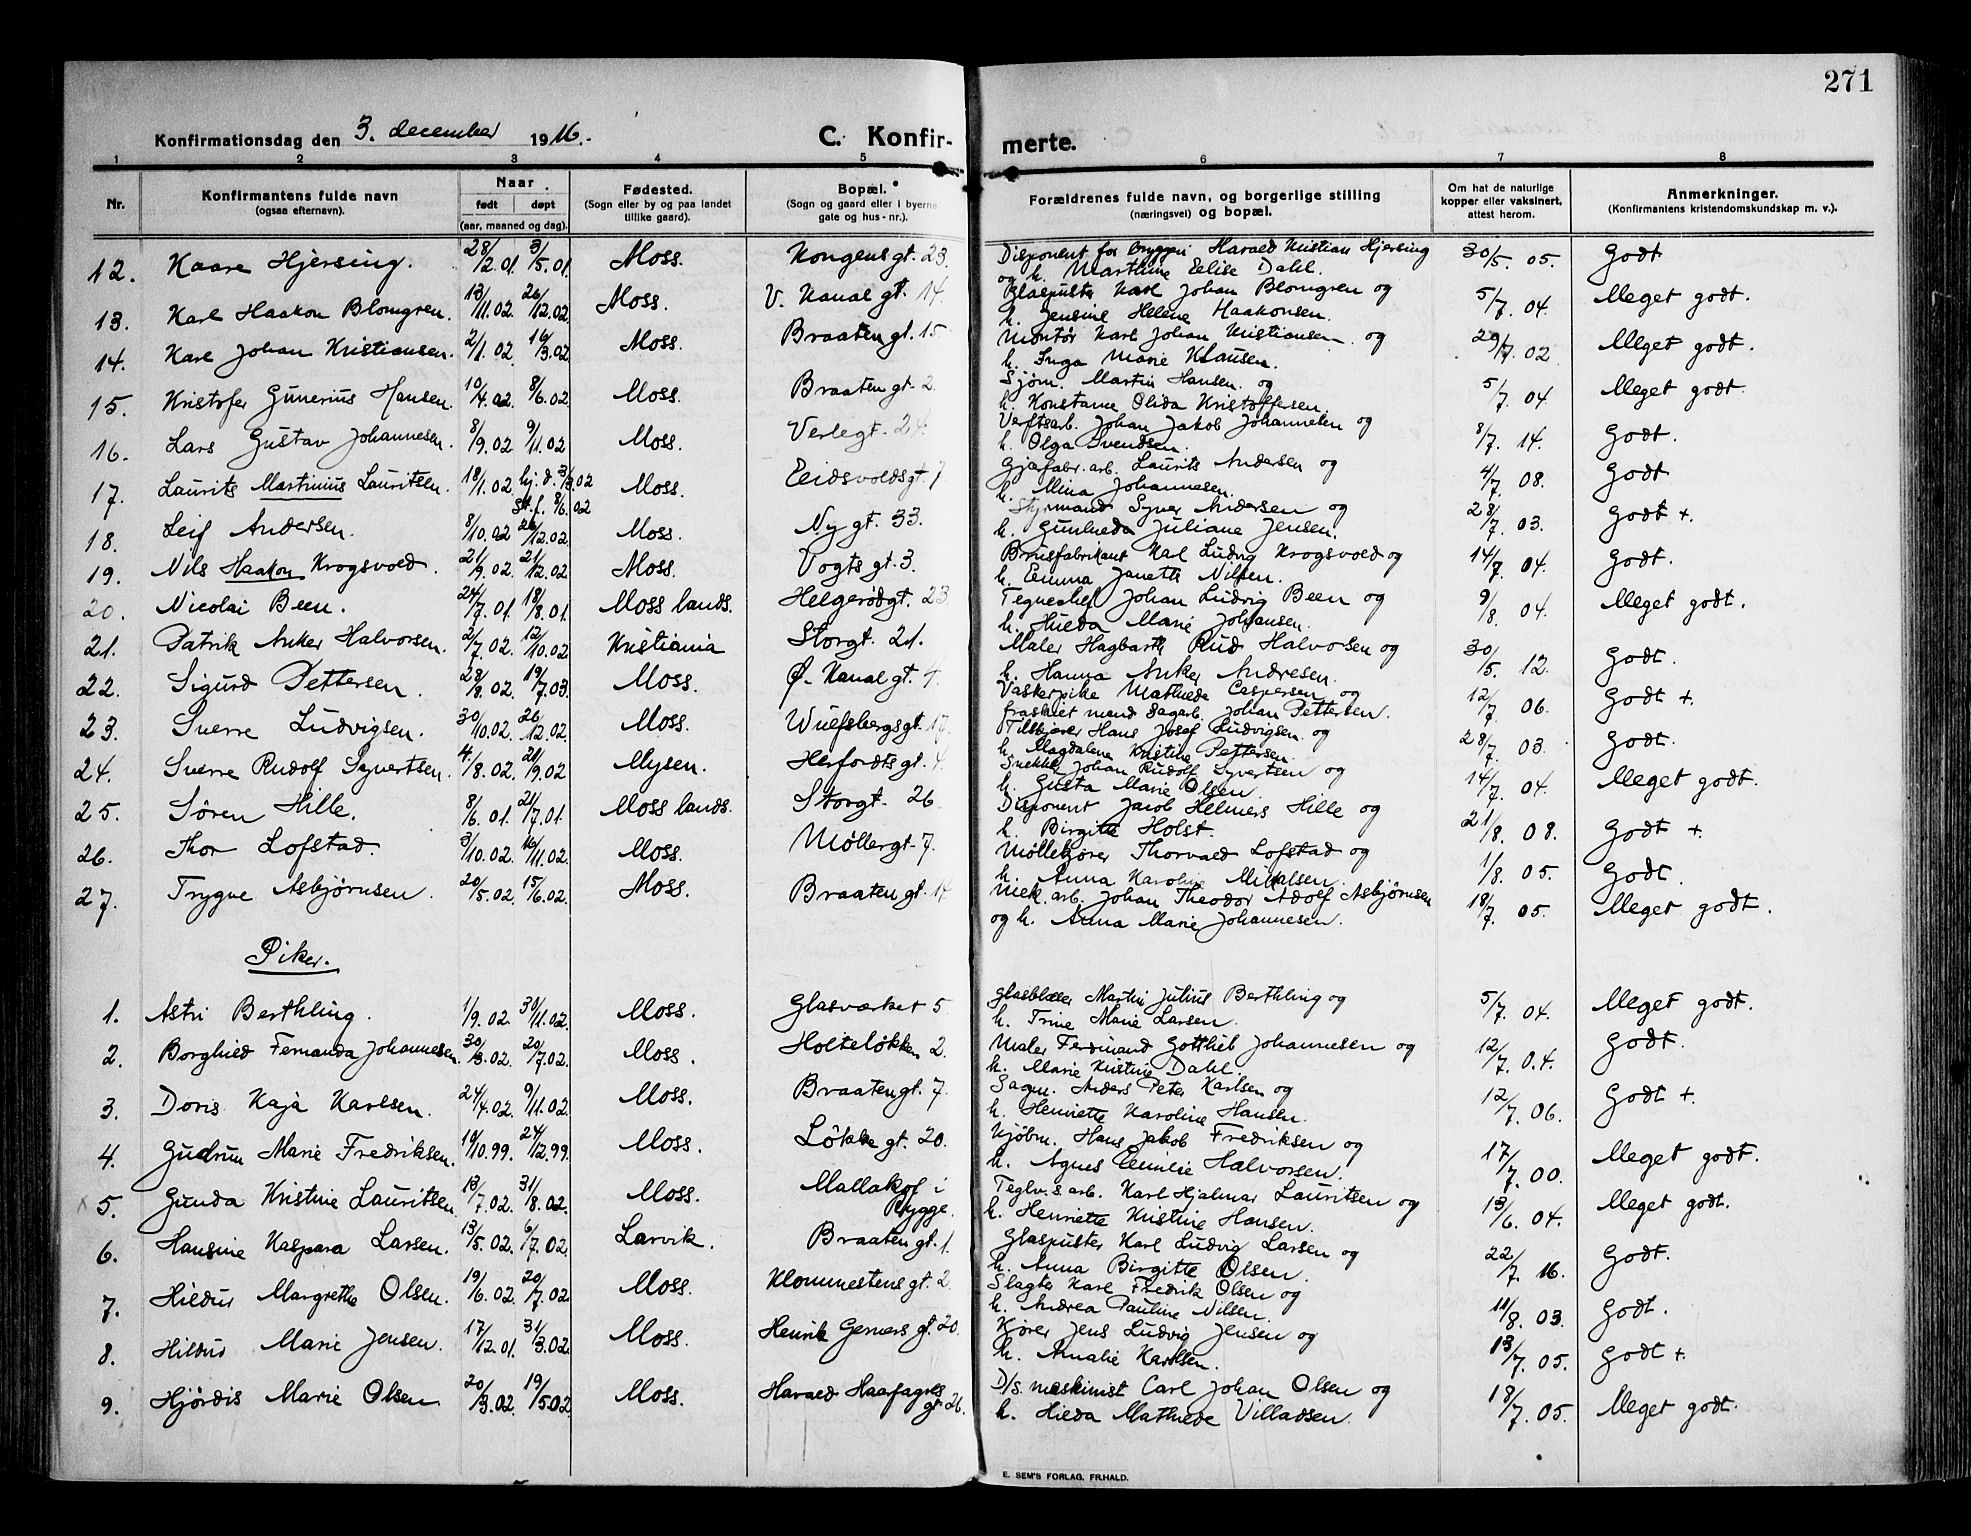 271
Konfirmationsdag den 3. december 1916.
C. Konfirmerte.
1 2 3 4 5 6 7 8
Nr. Konfirmantens fulde navn (ogsaa efternavn). Naar født døpt (aar, maaned og dag). Fødested. (Sogn eller by og paa landet tillike gaard). Bopæl. (Sogn og gaard eller i byerne gate og hus-nr.). Forældrenes fulde navn, og borgerlige stilling (næringsvei) og bopæl. Om hat de naturlige kopper eller vaksinert, attest herom. Anmerkninger. (Konfirmantens kristendomskundskap m. v.).
12. Kaare Hjersing. 28/12.01. 3/5.01. Moss. Kongensgt. 23. Disponent for bryggeri Harald Kristian Hjersing 30/5. 05. Godt
og h. Marthine Elise Dahl.
13. Karl Haakon Blomgren. 13/11.02. 26/12.02. Moss. V. Kanalgt. 14. Glaspuster Karl Johan Blomgren og 5/7. 04. Meget godt.
h. Jensine Helene Haakonsen.
14. Karl Johan Kristiansen. 2/1.02. 16/3.02 Moss. Braatengt. 15 Montør Karl Johan Kristiansen og 29/7. 02 Meget godt.
h. Inga Marie Klausen.
15. Kristofer Gunerius Hansen. 10/4.02. 8/6.02. Moss. Braatengt. 2. Sjøm. Martin Hansen og 5/7. 04. Meget godt.
h. Konstanse Olida Kristoffersen.
16. Lars Gustav Johannesen. 8/9.02. 9/11.02 Moss. Verlegt. 24. Verftsarb. Johan Jakob Johannesen og 8/7. 14. Godt.
h. Olga Svendsen.
17. Laurits Martinius Lauritsen. 18/1.02. hj.d. 3/3.02 Moss. Eidsvoldsgt. 7 Gjærfabr.arb. Laurits Andersen og 4/7. 08. Godt
st.f. 8/6.02 h. Mina Johannesen.
18. Leif Andersen. 8/10.02 26/12.02. Moss. Nygt. 33. Styrmand Syver Andersen og 28/7. 03. Godt +.
h. Gunhilda Juliane Jensen.
19. Nils Haakon Krogsvold. 21/9.02. 21/12.02. Moss. Vogtsgt. 3. Brusfabrikant Karl Ludvig Krogsvold og 14/7. 04. Godt.
h. Emma Janette Nilsen.
20. Nicolai Been. 24/7.01. 18/8.01. Moss lands. Helgerødgt. 23 Tegnechef Johan Ludvig Been og 9/8. 04. Meget godt.
h. Hilda Marie Johansen.
21. Patrik Anker Halvorsen. 2/7.02. 12/10.02. Kristiania Storgt. 21. Maler Hagbarth Rud Halvorsen og 30/5. 12. Godt.
h. Hanna Anker Andresen.
22. Sigurd Pettersen. 28/8.02. 19/7.03. Moss. Ø. Kanalgt. 4. Vaskerpike Mathilde Caspersen og 12/7. 06. Godt +
fraskilt mand Sagarb. Johan Pettersen.
23. Sverre Ludvigsen. 30/10.02. 26/12.02. Moss. Wulfsbergsgt. 17. Tilskjærer Hans Josef Ludvigsen og 28/7. 03. Godt.
h. Magdalena Kristine Pettersen.
24. Sverre Rudolf Syvertsen. 4/8.02. 21/9.02 Mysen. Herfordtsgt. 4. Snekker Johan Rudolf Syvertsen og 14/7. 04. Meget godt.
h. Gusta Marie Olsen.
25. Søren Hille. 8/6.01. 21/7.01. Moss lands. Storgt. 26. Disponent Jacob Helmers Hille og 21/8. 08. Godt +.
h. Birgitte Holst.
26. Thor Lofstad. 3/10.02. 16/11.02. Moss. Møllergt. 7. Møllekjører Thorvald Lofstad og 1/8. 05. Godt.
h. Anna Karoline Mikalsen.
27. Trygve Asbjørnsen. 20/5.02. 15/6.02. Moss. Braatengt. 14 Mek. arb. Johan Theodor Adolf Asbjørnsen 18/7. 05. Meget godt.
og h. Anna Marie Johannesen.
Piker.
1. Astri Berthling. 1/9.02. 30/11.02. Moss. Glasværket 5. Glasblæser Martin Julius Berthling og 5/7. 04. Meget godt.
h. Trine Marie Larsen.
2. Borghild Fernanda Johannesen. 30/3.02. 20/7.02. Moss. Holteløkken 2. Maler Ferdinand Gottlieb Johannesen og 12/7. 04. Godt.
h. Marie Kristine Dahl.
3. Doris Kaja Karlsen. 24/4.02. 9/11.02. Moss. Braatengt. 7. Sagm. Anders Peter Karlsen og 12/7. 06. Godt +.
h. Henriette Karoline Hansen.
4. Gudrun Marie Fredriksen. 19/10.99. 24/12.99. Moss. Løkkegt. 20. Kjøbm. Hans Jakob Fredriksen og 17/7. 00. Meget godt.
h. Agnes Emilie Halvorsen.
5. Gunda Kristine Lauritsen. 13/7.02. 31/8.02. Moss. Mallakof i Rygge. Teglv.s arb. Karl Hjalmar Lauritsen og 13/6. 04. Meget godt.
h. Henriette Kristine Hansen.
6. Hansine Kaspara Larsen. 13/5.02. 6/7.02. Larvik. Braatengt. 1. Glaspuster Karl Ludvig Larsen og 22/7. 16. Godt.
h. Anna Birgitte Olsen.
7. Hildur Margrethe Olsen. 19/6.02. 20/7.02. Moss. Klommestensgt. 2 Slagter Karl Fredrik Olsen og 11/8. 03. Godt.
h. Andrea Pauline Nilsen.
8. Hildur Marie Jensen. 17/12.01. 31/3.02. Moss. Henrik Gerners gt. 20. Kjører Jens Ludvig Jensen og 13/7. 05. Godt +.
h. Amalie Karlsen.
9. Hjørdis Marie Olsen. 20/3.02. 19/5.02. Moss. Harald Haafagres gt. 26. D/s. maskinist Carl Johan Olsen og 18/7. 05. Meget godt.
h. Hilda Mathilde Villadsen.
E. SEM'S FORLAG, FR.HALD.